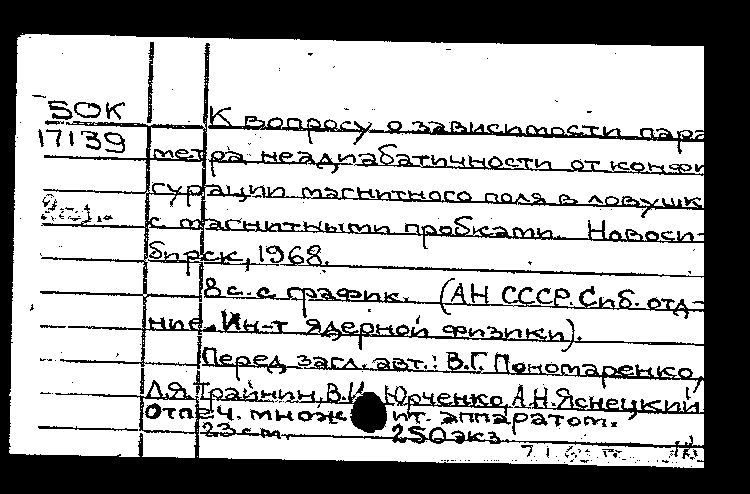 50К
17139
К вопросу о зависимости пара
метра неадиабатичности от конфи
гурации магнитного поля в ловушк
с магнитными пробками. Новоси-
бирск, 1968.
8 с. с график. (АН СССР. Сиб. отд-
ние. Ин-т ядерной физики).
Перед загл. авт.: В.Г. Пономаренко,
Л.Я. Трайнин, В.И. Юрченко, А.Н. Яснецкий
Отпеч. множ ит. аппаратом.
23 см. 250 экз.